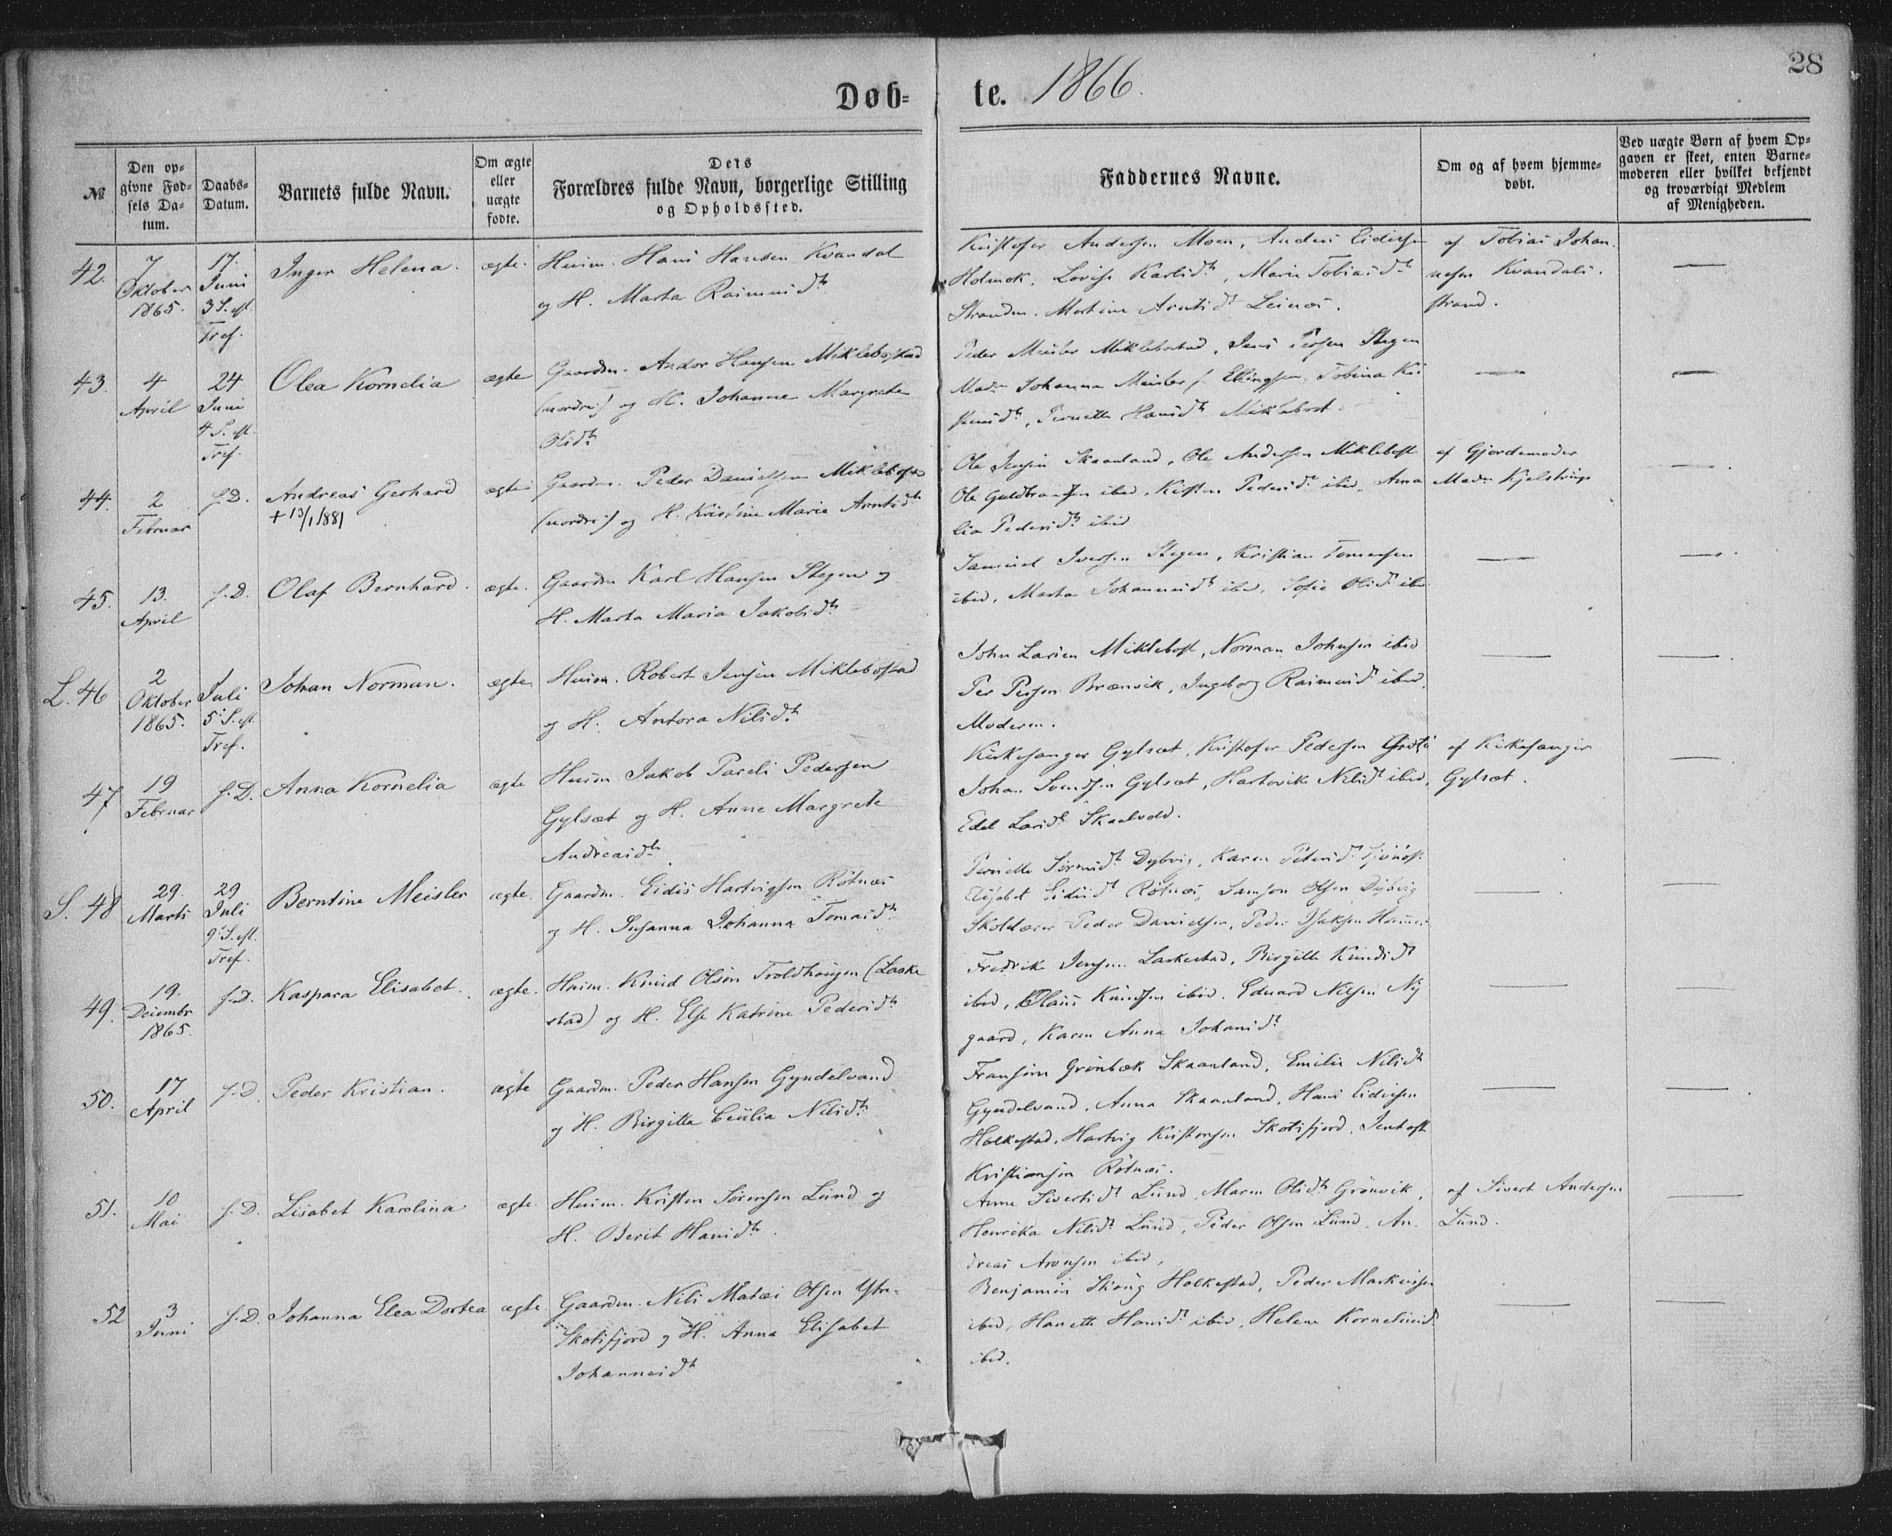 28
Døb= te. 1866.
№
Den op=
givne Fød=
sels Da=
tum.
Daabs=
Datum.
Barnets fulde Navn.
Om ægte
eller
uægte
fødte.
Dets
Forældres fulde Navn, borgerlige Stilling
og Opholdssted.
Faddernes Navne.
Om og af hvem hjemme=
døbt.
Ved uægte Børn af hvem Op=
gaven er skeet, enten Barne=
moderen eller hvilket bekjendt
og troværdigt Medlem
af Menigheden.
42. 7 Oktober 1865. 17. Juni 3 S. eft. Tref. Inger Helena. ægte.
Husm. Hans Hansen Kvandal
og H. Marta Rasmusdt
Kristofer Andersen Moen, Anders Eidissen
Holmok, Lovise Karlsdt, Marie Tobiasdt
Stranden. Martine Arntsdt Leines.
af Tobias Johan
nesen Kvandals
strand.
43. 4 April 24 Juni 4 S. eft. Tref. Olea Kornelia ægte
Gaardm. Andor Hansen Miklebostad
(nordre) og H. Johanne Margrete
Olsdt
Peder Meisler Miklebostad, Jens Persen Stegen
Mad. Johanna Meisler f. Ellingsen, Tobina
Pernette Hansdt Miklebost.
44. 2 Februar f. D. Andreas Gerhard ægte
+ 13/1 1881
Gaardm. Peder Danielsen Miklebost
(nordre) og H. Kristine Marie Arntsdt
Ole Jensen Skaanland, Ole Andersen Miklebost
Ole Guldbransen ibid. Kirsten Pedersdt ibid. Ama
lia Pedersdt ibid
af Gjordemoder
Mad. Kjelstrup
45. 13. April f. D. Olaf Bernhard. ægte.
Gaardm. Karl Hansen Stegen og
H. Marta Maria Jakobsdt
Samuel Iversen Stegen, Kristian Tomassen
ibid, Marta Johannesdt ibid, Sofie Olsdt ibid
L. 46 2 Oktober 1865. Juli 5 S. eft. Tref. Johan Norman. ægte
Husm. Robert Jensen Miklebostad
og H. Antora Nilsdt
John Larsen Miklebost, Norman Johnsen ibid
Per Persen Brænvik, Ingeborg Rasmusdt ibid,
Moderen.
47 19 Februar f. D. Anna Kornelia ægte
Husm. Jakob Pareli Pedersen
Gylsæt og H. Anne Margrete
Andreasdt
Kirkesanger Gylsæt, Kristofer Pedersen
Johan Svendsen Gylsæt, Hartvika Nilsdt ibid,
Edel Larsdt Skaalvold.
af Kirkesanger
Gylsæt.
S. 48 29. Marts 29 Juli 9 S. eft. Tref. Berntine Meisler ægte.
Gaardm. Eidis Hartvigsen Røtnes
og H. Susanna Johanna Tomasdt
Pernille Dybvig, Karen
Elisabet Eidisdt Røtnes, Samson Olsen Dybvig
Skolelærer Peder Danielsen, Peder Isaksen
49. 19. Decembr 1865. f. D. Kaspara Elisabet. ægte.
Husm. Knud Olsen Troldhaugen (Laske
stad) og H. Else Katrine Pedersdt
Fredrik Jensen Laskestad, Birgitte Knudsdt
ibid, Claus Knudsen ibid. Eduard Nilsen Ny
gaard, Karen Anna Johansdt
50. 17 April f. D. Peder Kristian. ægte
Gaardm. Peder Hansen Gyndelvand
og H. Birgitta Cecilia Nilsdt
Fransine Grønbæk Skaanland, Emilie Nilsdt
Gyndelvand, Anna Skaanland, Hans Eidissen
Holkestad, Hartvig Kristensen Skotsfjord. Jentoft
Kristiansen Røtnes.
51. 10 Mai f. D. Lisabet Karolina ægte.
Husm. Kristen Sørensen Lund og
H. Berit Hansdt
Anne Sivertsdt Lund, Maren Olsdt Grønvik,
Henrika Nilsdt Lund, Peder Olsen Lund, An-
dreas Aronsen ibid,
af Sivert Andersen
Lund.
52 3 Juni f. D. Johanna Elea Dortea ægte.
Gaardm. Nils Matæi Olsen Ytre-
Skotsfjord og H. Anna Elisabet
Johannesdt
Benjamin Skaug Holkestad, Peder Markussen
ibid, Hanette Hansdt ibid, Helene Korneliusdt
ibid.